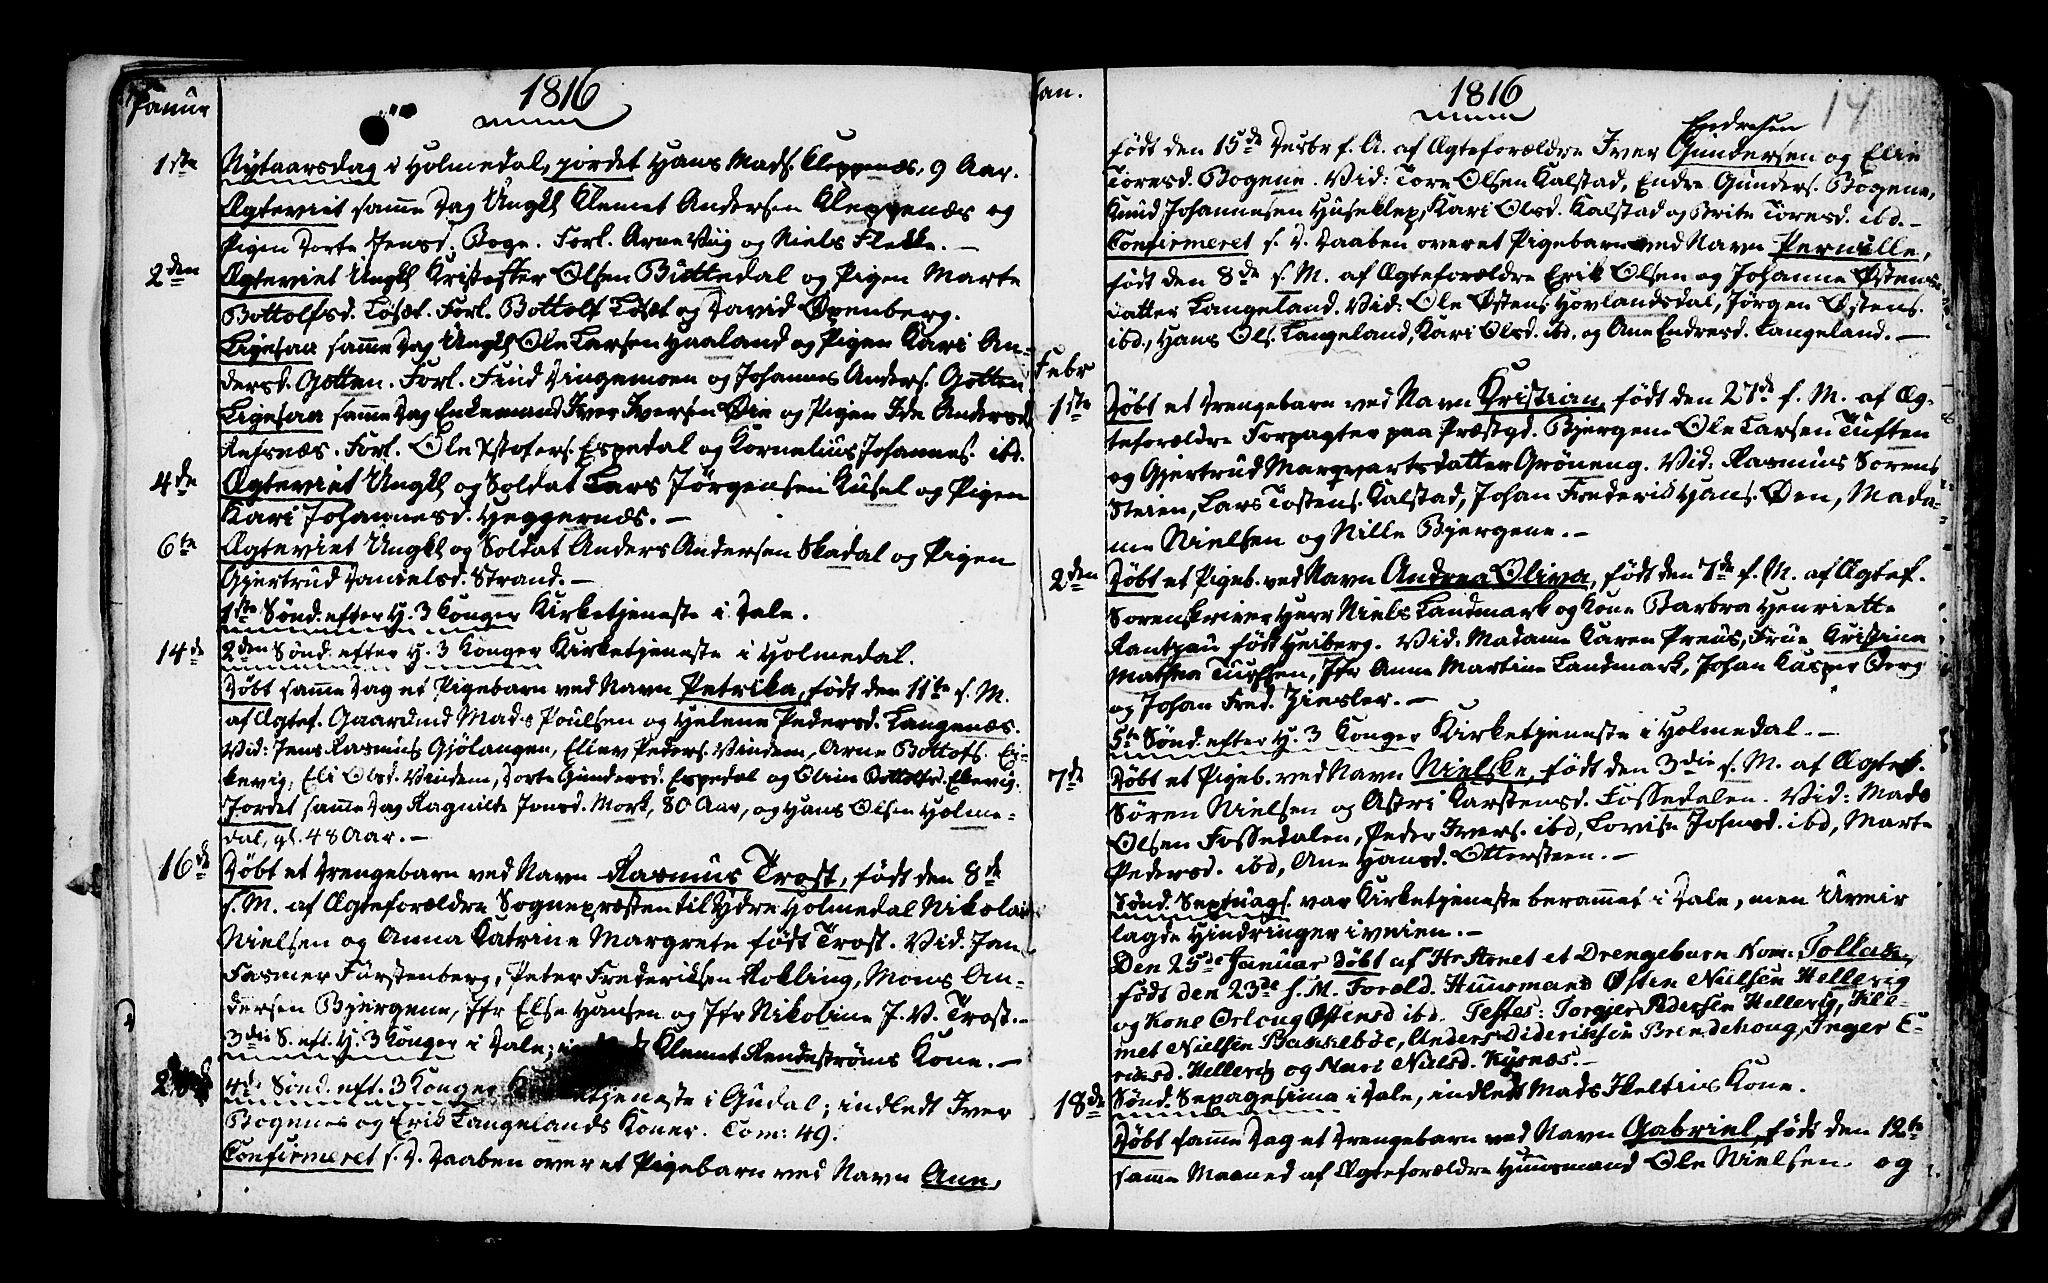 Januar
1816
1ste Nytaarsdag i Holmedal, jordet Hans Mads. Cleppenæs, 9 Aar.
Ægteviet samme Dag Ungkl Klemet Andersen Kleppenæs og
Pigen Dorte Jensd. Boge. Forl. Arne Vug og Niels Flekke. –
2den Ægteviet Ungkl Kristoffer Olsen Büttedal og Pigen Marte
Bottolfsd. Löset. Forl. Bottolf Löset og David Öxenberg.
Ligesaa samme Dag Ungkl Ole Larsen Haaland og Pigen Kari An-
dersd. Gotten. Forl. Find Vingemoen og Johannes Anders. Gotten
Ligesaa samme Dag Enkemand Iver Iversen Öie og Pigen Ide Andersd
Refsnæs. Forl. Ole Kstofers. Espedal og Kornelius Johannes. ibd.
4de Ægteviet Ungkl og Soldat Lars Jörgensen Küsel og Pigen
Kari Johannesd. Heggernæs. –
6te Ægteviet Ungkl og Soldat Anders Andersen Skadal og Pigen
Gjertrud Danielsd. Strand. –
1ste Sönd. efter H. 3 Konger Kirketjeneste i Dale.
14de 2den Sönd. efter H. 3 Konger Kirketjeneste i Holmedal.
Döbt samme Dag et Pigebarn ved Navn Petrika, födt den 11te s. M.
af Ægtef. Gaardmd Mads Poulsen og Helene Pedersd. Langenæs.
Vid: Jens Rasmus Gjölangen, Eliev Peders. Vindem, Arne Bottofs. Ei-
kevig, Eli Olsd. Vindem, Dorte Gundersd. Espedal og Olain Bottolfsd. Ekevig.
Jordet samme Dag Ragnilde Jonsd. Mork, 80 Aar, og Hans Olsen Holme-
dal, gl. 48 Aar. –
16de Döbt et Drengebarn ved Navn Rasmus Trost, födt den 8de
s. M. af Ægteforældre Sognepræsten til Ydre Holmedal Nikolai
Nielsen og Anna Katrine Margrete födt Trost. Vid. Jan
Fasmer Fürstenberg, Peter Frederiksen Rokling, Mons An-
dersen Bjergene, Jfr Else Hansen og Jfr Nikoline J. V. Trost. –
3die S. eft. H. 3 Konger i Dale; Klemet Rendeströms Kone. –
4de Sönd. eft. 3 Konger Kirketjeneste i Gudal; indledt Iver
Bogenes og Erik Langelands Koner. Com: 49.
Confirmeret s. D. Daaben over et Pigebarn ved Navn Ane,
Jan.
1816
14
Endresen
födt den 15de Decbr f. A. af Ægteforældre Iver Gundersen og Elie
Toresd. Bogene. Vid: Tore Olsen Kalstad, Endre Gunders. Bogene,
Knud Johannesen Huseklep, Kari Olsd. Kalstad og Brite Toresd. ibd. –
Confirmeret s. D. Daaben over et Pigebarn ved Navn Pernille,
födt den 8de s. M. af Ægteforældre Erik Olsen og Johanne Östens-
datter Langeland. Vid: Ole Östens. Hovlandsdal, Jörgen Östens.
ibd., Hans Ols. Langeland, Kari Olsd. ibd. og Ane Endresd. Langeland. –
Febr
1ste Döbt et Drengebarn ved Navn Kristian, födt den 27de f. M. af Æg-
teforældre Forpagter paa Præstgd. Bjergene Ole Larsen Tuften
og Gjertrud Margvartsdatter Gröneng. Vid: Rasmus Sörens.
Steien, Lars Tostens. Kalstad, Johan Frederik Hans. Öen, Mada-
me Nielsen og Nille Bjergene. –
2den Döbt et Pigeb. ved Navn Andrea Oliva, födt den 7de f. M. af Ægtef.
Sorenskriver Herr Niels Landmark og Kone Barbra Henriette
Rantzau födt Heiberg. Vid: Madame Karen Preus, Frue Kristine
Mathea Tuchsen, Jfr Anne Martine Landmark, Johan Kasper Berg
og Johan Fred. Ziesler. –
5te Sönd. efter H. 3 Konger Kirketjeneste i Holmedal. –
7de Döbt et Pigeb. ved Navn Nielske, födt den 3die s. M. af Ægtef.
Sören Nielsen og Astri Karstensd. Fossedalen. Vid: Mads
Olsen Fossedalen, Peder Ivers. ibd, Lovise Johnsd. ibd, Marte
Pedersd. ibd, Ane Hansd. Ottersteen. –
Sönd. Septuags. var Kirketjeneste berammet i Dale, men Uveir
lagde Hindringer i veien. –
Den 25de Januar döbt af Hr Stenet et Drengebarn Nom: Tollak,
födt den 23de s. M. Foræld. Huusmand Östen Nielsen Hellevig
og Kone Orloug Östensd ibd. Testes: Torgjer Pedersen Hellevig, Kill-
met Nielsen Bakkeböe, Anders Dideriksen Brendehoug, Inger E-
riksd. Hellevig og Mari Nielsd. Kysnæs. –
18de Sönd. Sexagesima i Dale, indledt Mads Skeltris Kone.
Döbt samme Dag et Drengebarn ved Navn Gabriel, födt den 12te
samme Maaned af Ægteforældre Huusmand Ole Nielsen og